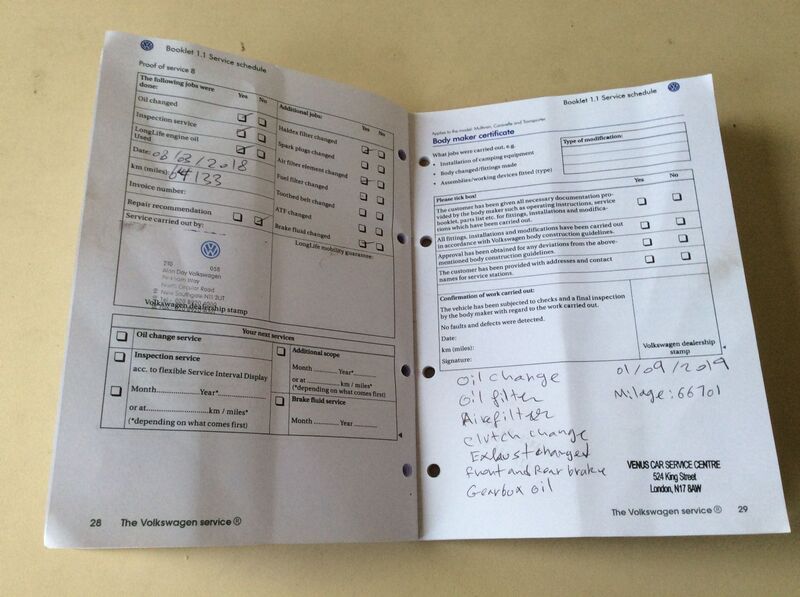 Booklet 1.1 Service schedule
Proof of service 8
The following jobs were done:
Yes
No
Oil changed
Inspection service
LongLife engine oil
Used
Date: 08/03/2018
km (miles): 64133
Invoice number:
Repair recommendation
Service carried out by:
210 058
Alan Day Volkswagen
North Circular Road
New Southgate N11
Volkswagen dealership stamp
Additional jobs:
Yes
No
Haldex filter changed
Spark plugs changed
Air filter element changed
Fuel filter changed
Toothed belt changed
ATF changed
Brake fluid changed
LongLife mobility guarantee:
Your next services
Oil change service
Inspection service
acc. to flexible Service Interval Display
Month.............. Year*..............
or at........................km / miles*
(*depending on what comes first)
Additional scope
Month ............. Year*..............
or at ........................km / miles*
(*depending on what comes first)
Brake fluid service
Month ............. Year..............
28 The Volkswagen service®
Booklet 1.1 Service schedule
Applies to the model: Multivan, Caravelle and Transporter
Body maker certificate
What jobs were carried out, e.g.
• Installation of camping equipment
• Body changed/fittings made
• Assemblies/working devices fitted (type)
Type of modification:
Please tick box!
Yes
No
The customer has been given all necessary documentation pro-
vided by the body maker such as operating instructions, service
booklet, parts list etc. for fittings, installations and modifica-
tions which have been carried out.
All fittings, installations and modifications have been carried out
in accordance with Volkswagen body construction guidelines.
Approval has been obtained for any deviations from the above-
mentioned body construction guidelines.
The customer has been provided with addresses and contact
names for service stations.
Confirmation of work carried out:
The vehicle has been subjected to checks and a final inspection
by the body maker with regard to the work carried out.
No faults and defects were detected.
Date:
km (miles):
Signature:
Volkswagen dealership
stamp
oil change
oil filter
Airfilter
Clutch change
Exhaust changed
front and Rear brake
Gearbox oil
01/09/2019
Milage: 66701
VENUS CAR SERVICE CENTRE
524 King Street
London, N17 8AW
The Volkswagen service® 29